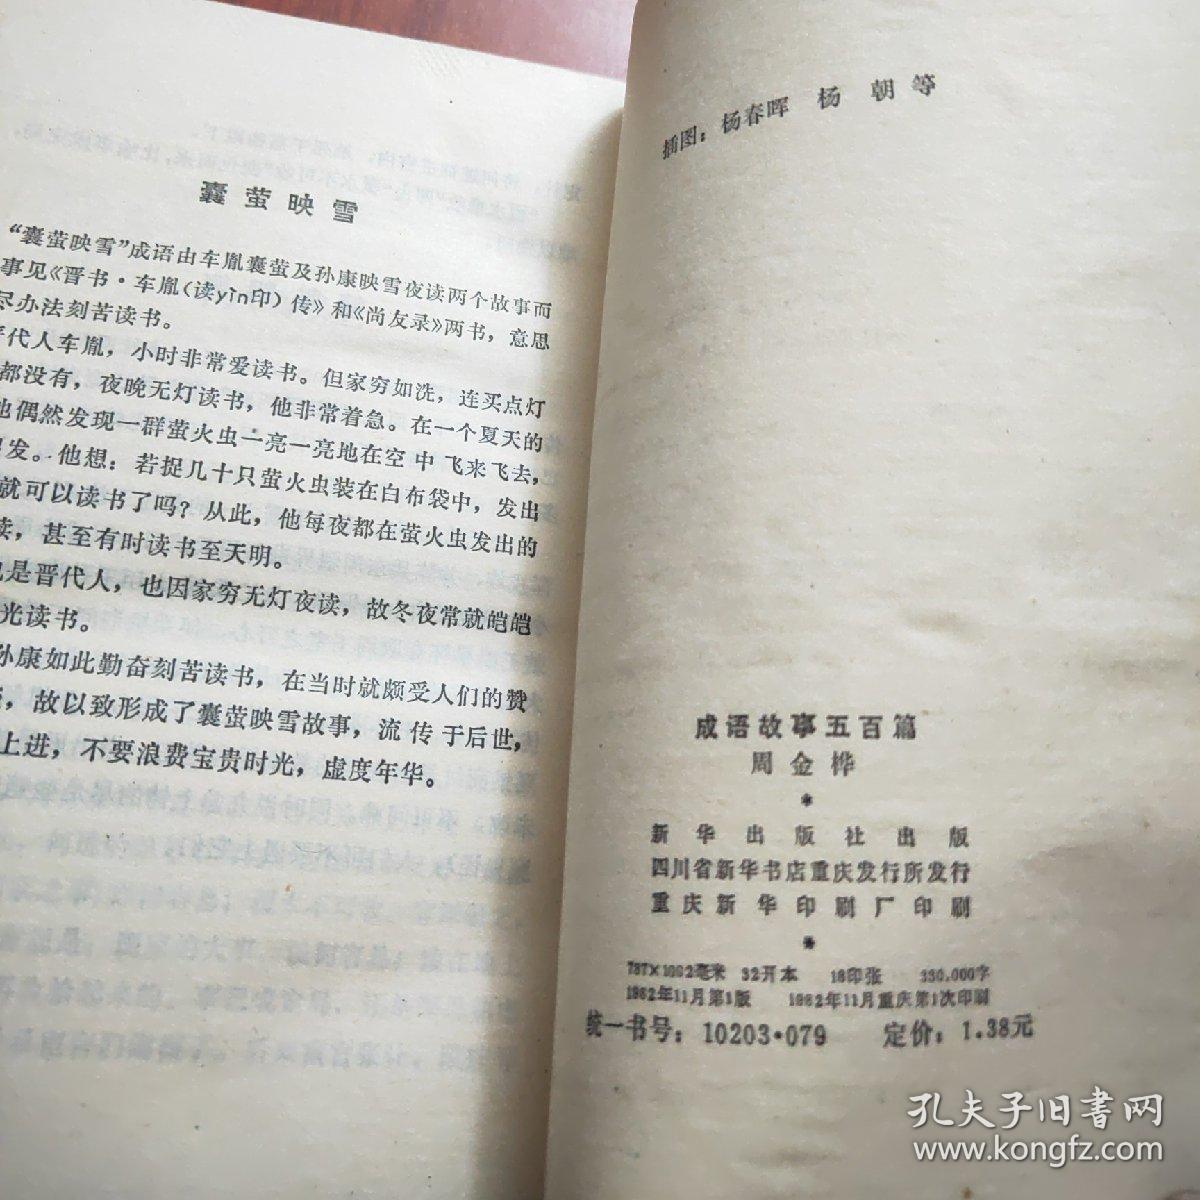 囊萤映雪
“囊萤映雪”成语由车胤囊萤及孙康映雪夜读两个故事而
事见《晋书·车胤(读yìn印)传》和《尚友录》两书，意思
尽办法刻苦读书。
代人车胤，小时非常爱读书。但家穷如洗，连买点灯
都没有，夜晚无灯读书，他非常着急。在一个夏天的
他偶然发现一群萤火虫一亮一亮地在空中飞来飞去，
发。他想：若捉几十只萤火虫装在白布袋中，发出
就可以读书了吗？从此，他每夜都在萤火虫发出的
读，甚至有时读书至天明。
也是晋代人，也因家穷无灯夜读，故冬夜常就皑皑
光读书。
孙康如此勤奋刻苦读书，在当时就颇受人们的赞
，故以致形成了囊萤映雪故事，流传于后世，
上进，不要浪费宝贵时光，虚度年华。
插图：杨春晖 杨朝等
成语故事五百篇
周金桦
*
新华出版社出版
四川省新华书店重庆发行所发行
重庆新华印刷厂印刷
*
787×1092毫米 32开本 18印张 330,000字
1982年11月第1版 1982年11月重庆第1次印刷
统一书号：10203·079 定价：1.38元
孔夫子旧书网
www.kongfz.com